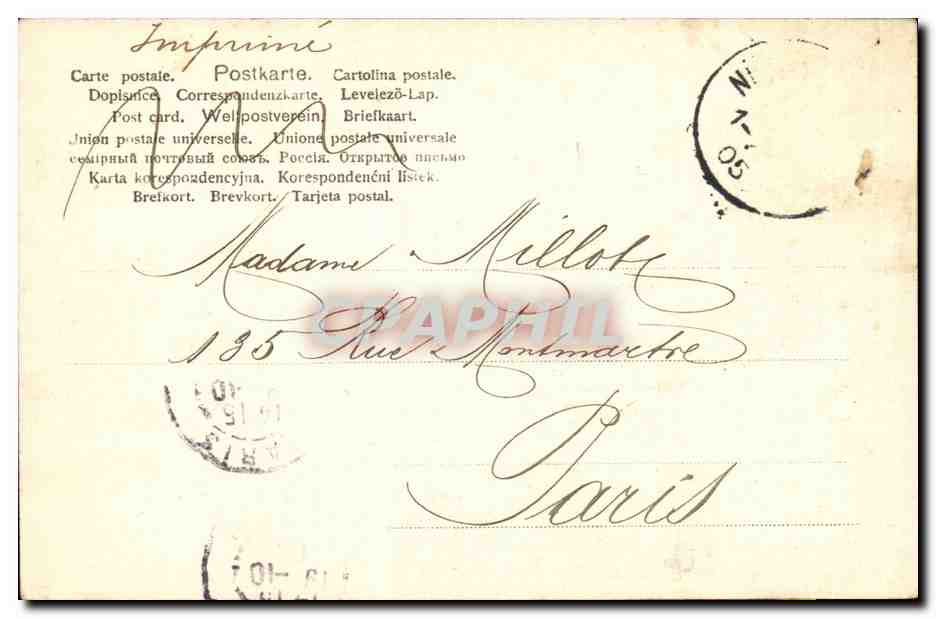 Imprimé
Carte postale. Postkarte. Cartolina postale.
Dopisnice. Correspondenzkarte. Levelező-Lap.
Post card. Weltpostverein. Briefkaart.
Union postale universelle. Unione postale universale
семірный почтовый союзъ. Россія. Открытое письмо
Karta korespondencyjna. Korespondenćni listek.
Brefkort. Brevkort. Tarjeta postal.
05
Madame Millot
CPAPHIL
135 Rue Montmartre
Paris
PARIS